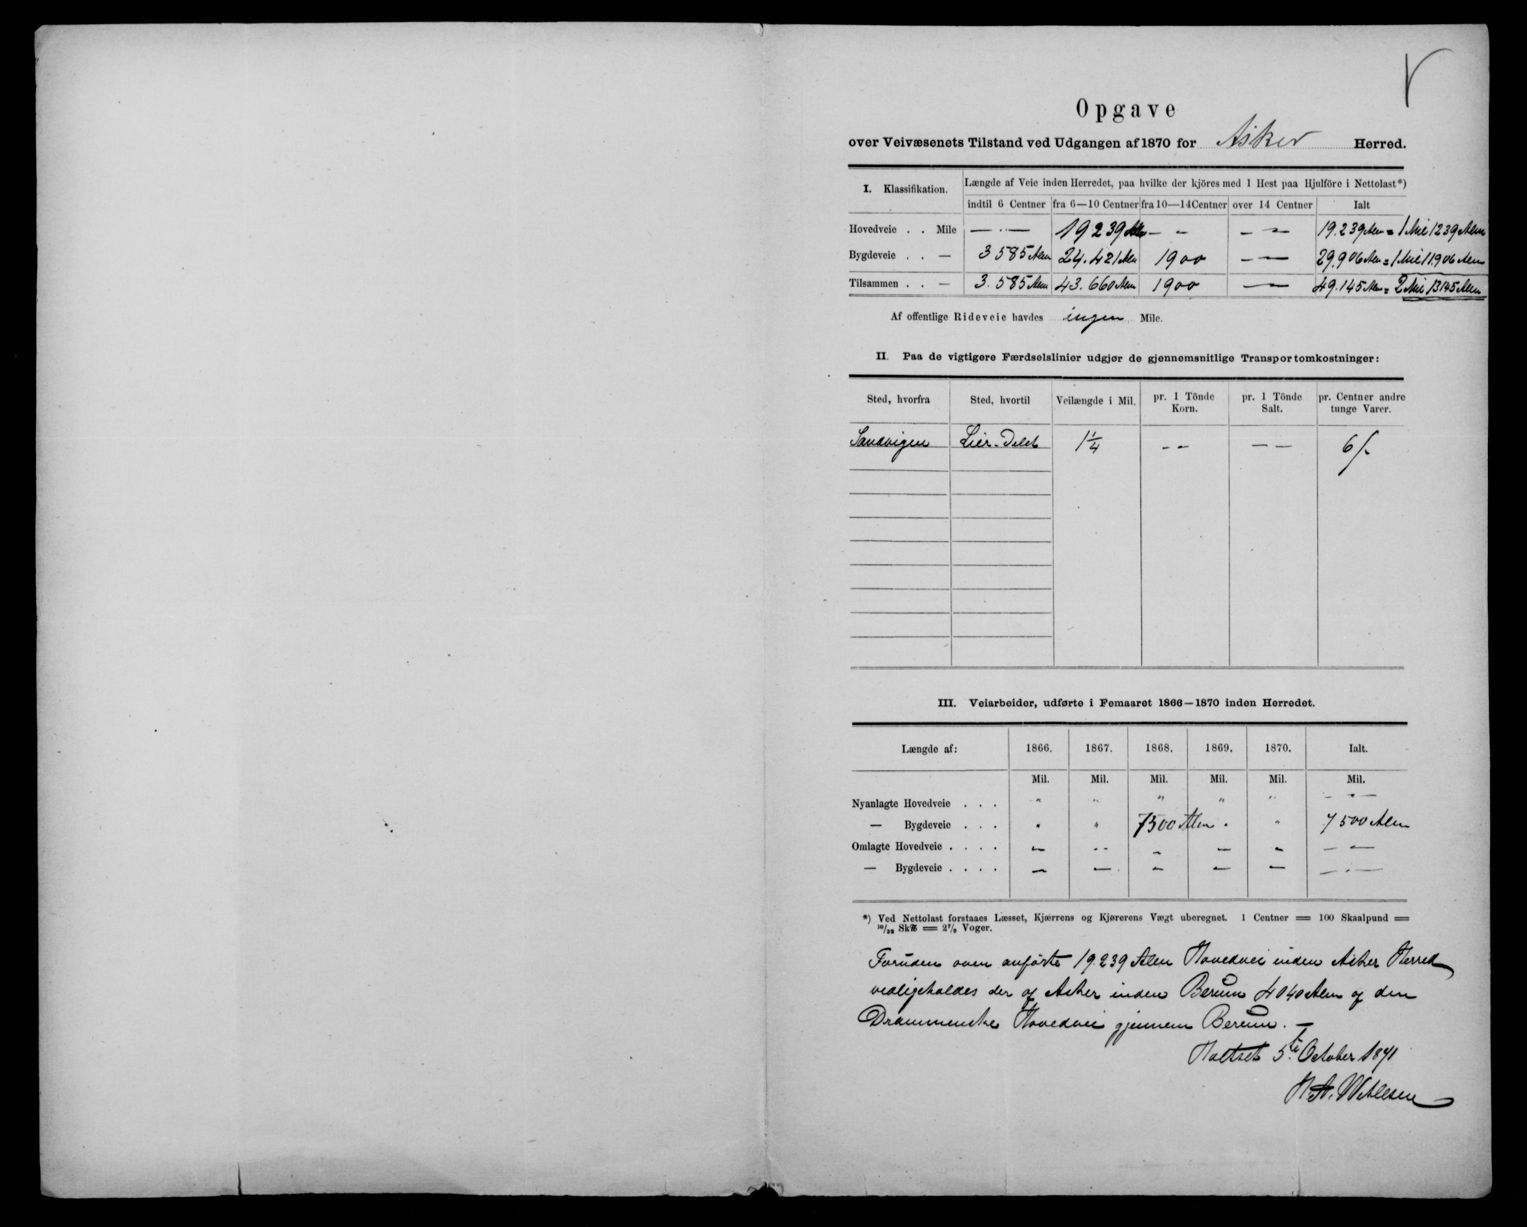 Opgave
over Veivæsenets Tilstand ved Udgangen af 1870 for Asker Herred.
I. Klassifikation. Længde af Veie inden Herredet, paa hvilke der kjöres med 1 Hest paa Hjulföre i Nettolast*)
indtil 6 Centner fra 6—10 Centner fra 10—14 Centner over 14 Centner Ialt
Hovedveie . . Mile — " — 19239 Alen — " — " — 19.239 Alen = 1 Mil 1239 Alen
Bygdeveie . . — 3585 Alen 24.421 Alen 1900 — " — 29.906 Alen = 1 Mil 11.906 Alen
Tilsammen . . — 3.585 Alen 43.660 Alen 1900 — " — 49.145 Alen = 2 Mil 13145 Alen
Af offentlige Rideveie havdes ingen Mile.
II. Paa de vigtigere Færdselslinier udgjør de gjennemsnitlige Transportomkostninger:
Sted, hvorfra Sted, hvortil Veilængde i Mil. pr. 1 Tönde Korn. pr. 1 Tönde Salt. pr. Centner andre tunge Varer.
Sandvigen Lier-Delet 1 1/4 — — — — 6/-
III. Veiarbeider, udførte i Femaaret 1866—1870 inden Herredet.
Længde af: 1866. 1867. 1868. 1869. 1870. Ialt.
Mil. Mil. Mil. Mil. Mil. Mil.
Nyanlagte Hovedveie . . . " " " " " — " —
— Bygdeveie . . . " " 7500 Alen " " 7500 Alen
Omlagte Hovedveie . . . . — " — — — — —
— Bygdeveie . . . . — — — — — — —
*) Ved Nettolast forstaaes Læsset, Kjærrens og Kjørerens Vægt uberegnet. 1 Centner = 100 Skaalpund =
10/32 Sk℔ = 2 7/9 Voger.
Foruden oven anførte 19.239 Alen Hovedvei inden Asker Herred
vedligeholdes der af Asker inden Berum 4040 Alen af den
Drammenske Hovedvei gjennem Berum. —
5te October 1871